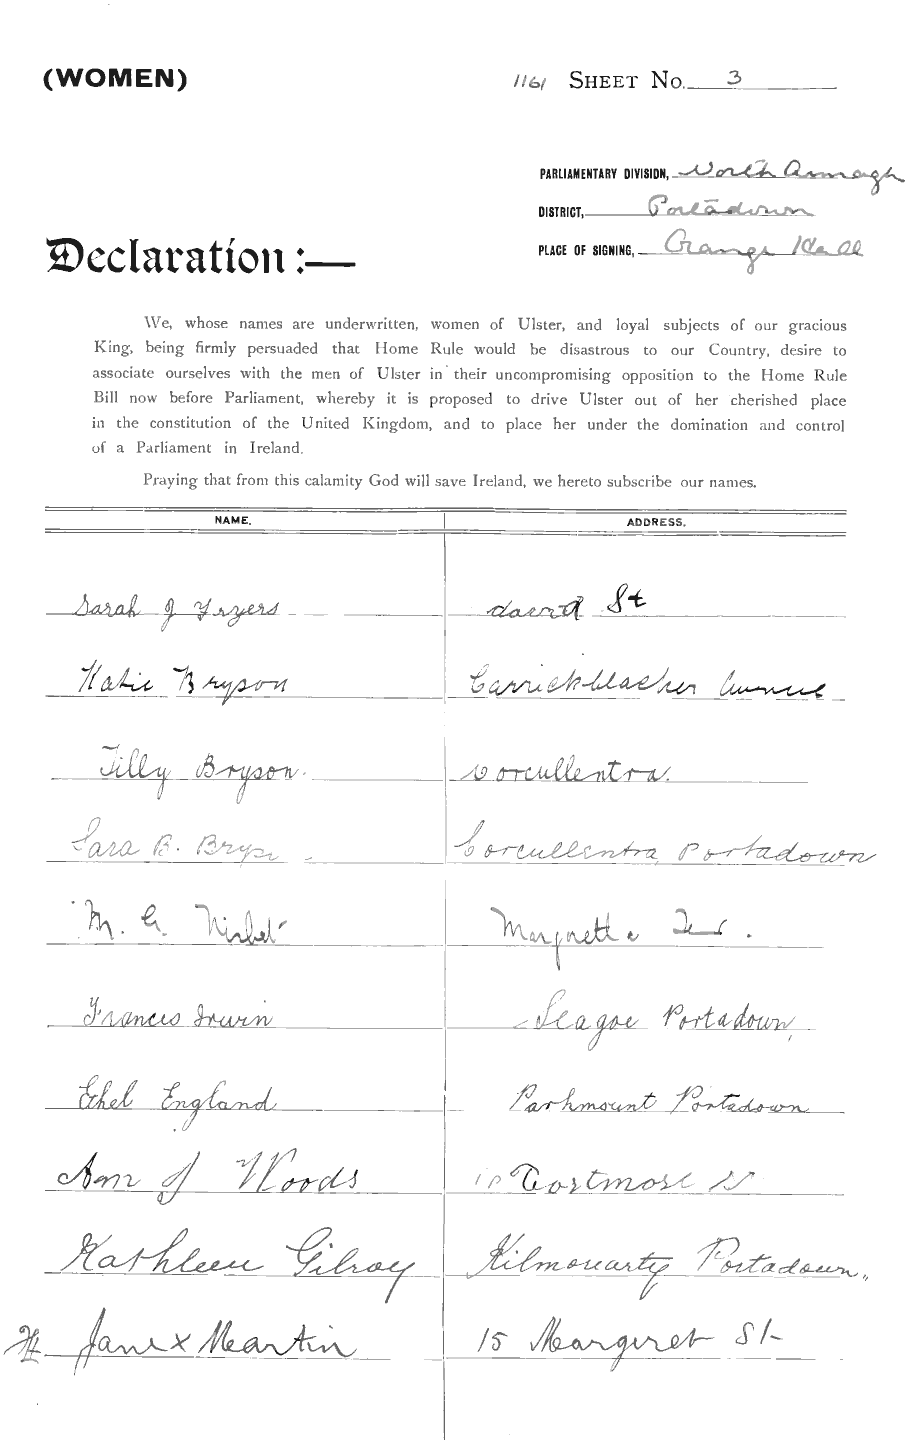 (WOMEN)
1161 SHEET No. 3
PARLIAMENTARY DIVISION, North Armagh
DISTRICT, Portadown
PLACE OF SIGNING, Orange Hall
Declaration :—
We, whose names are underwritten, women of Ulster, and loyal subjects of our gracious
King, being firmly persuaded that Home Rule would be disastrous to our Country, desire to
associate ourselves with the men of Ulster in their uncompromising opposition to the Home Rule
Bill now before Parliament, whereby it is proposed to drive Ulster out of her cherished place
in the constitution of the United Kingdom, and to place her under the domination and control
of a Parliament in Ireland.
Praying that from this calamity God will save Ireland, we hereto subscribe our names.
NAME. ADDRESS.
Sarah J David St
Katie Bryson Carrickblacker Avenue
Tilly Bryson. Corcullentra.
Sara B. Corcullentra Portadown
M. G. Nisbet Margretta Ter.
Francis Irwin Seagoe Portadown,
Ethel England Parkmount Portadown
Ann J Woods 10 St
Kathleen Gilroy Kilmoriarty Portadown
Jane x Martin 15 Margret St